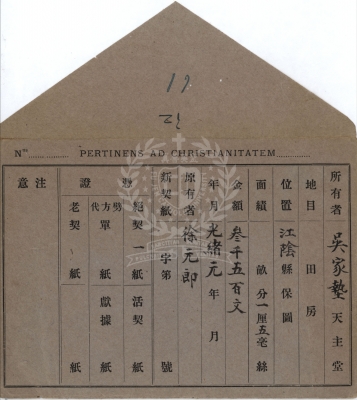 17
N⁰ˢ PERTINENS AD CHRISTIANITATEM
所有者 吳家墊 天主堂
地目 田房
位置 江陰縣保圖
面績 畝分一厘五毫絲
金額 叁千五百文
年月 光緒元年 月
原有者 徐元郎
新契紙 字第 號
憑證
絕契一紙 活契 紙
代方單 紙 獻據 紙
老契 紙 紙
注意